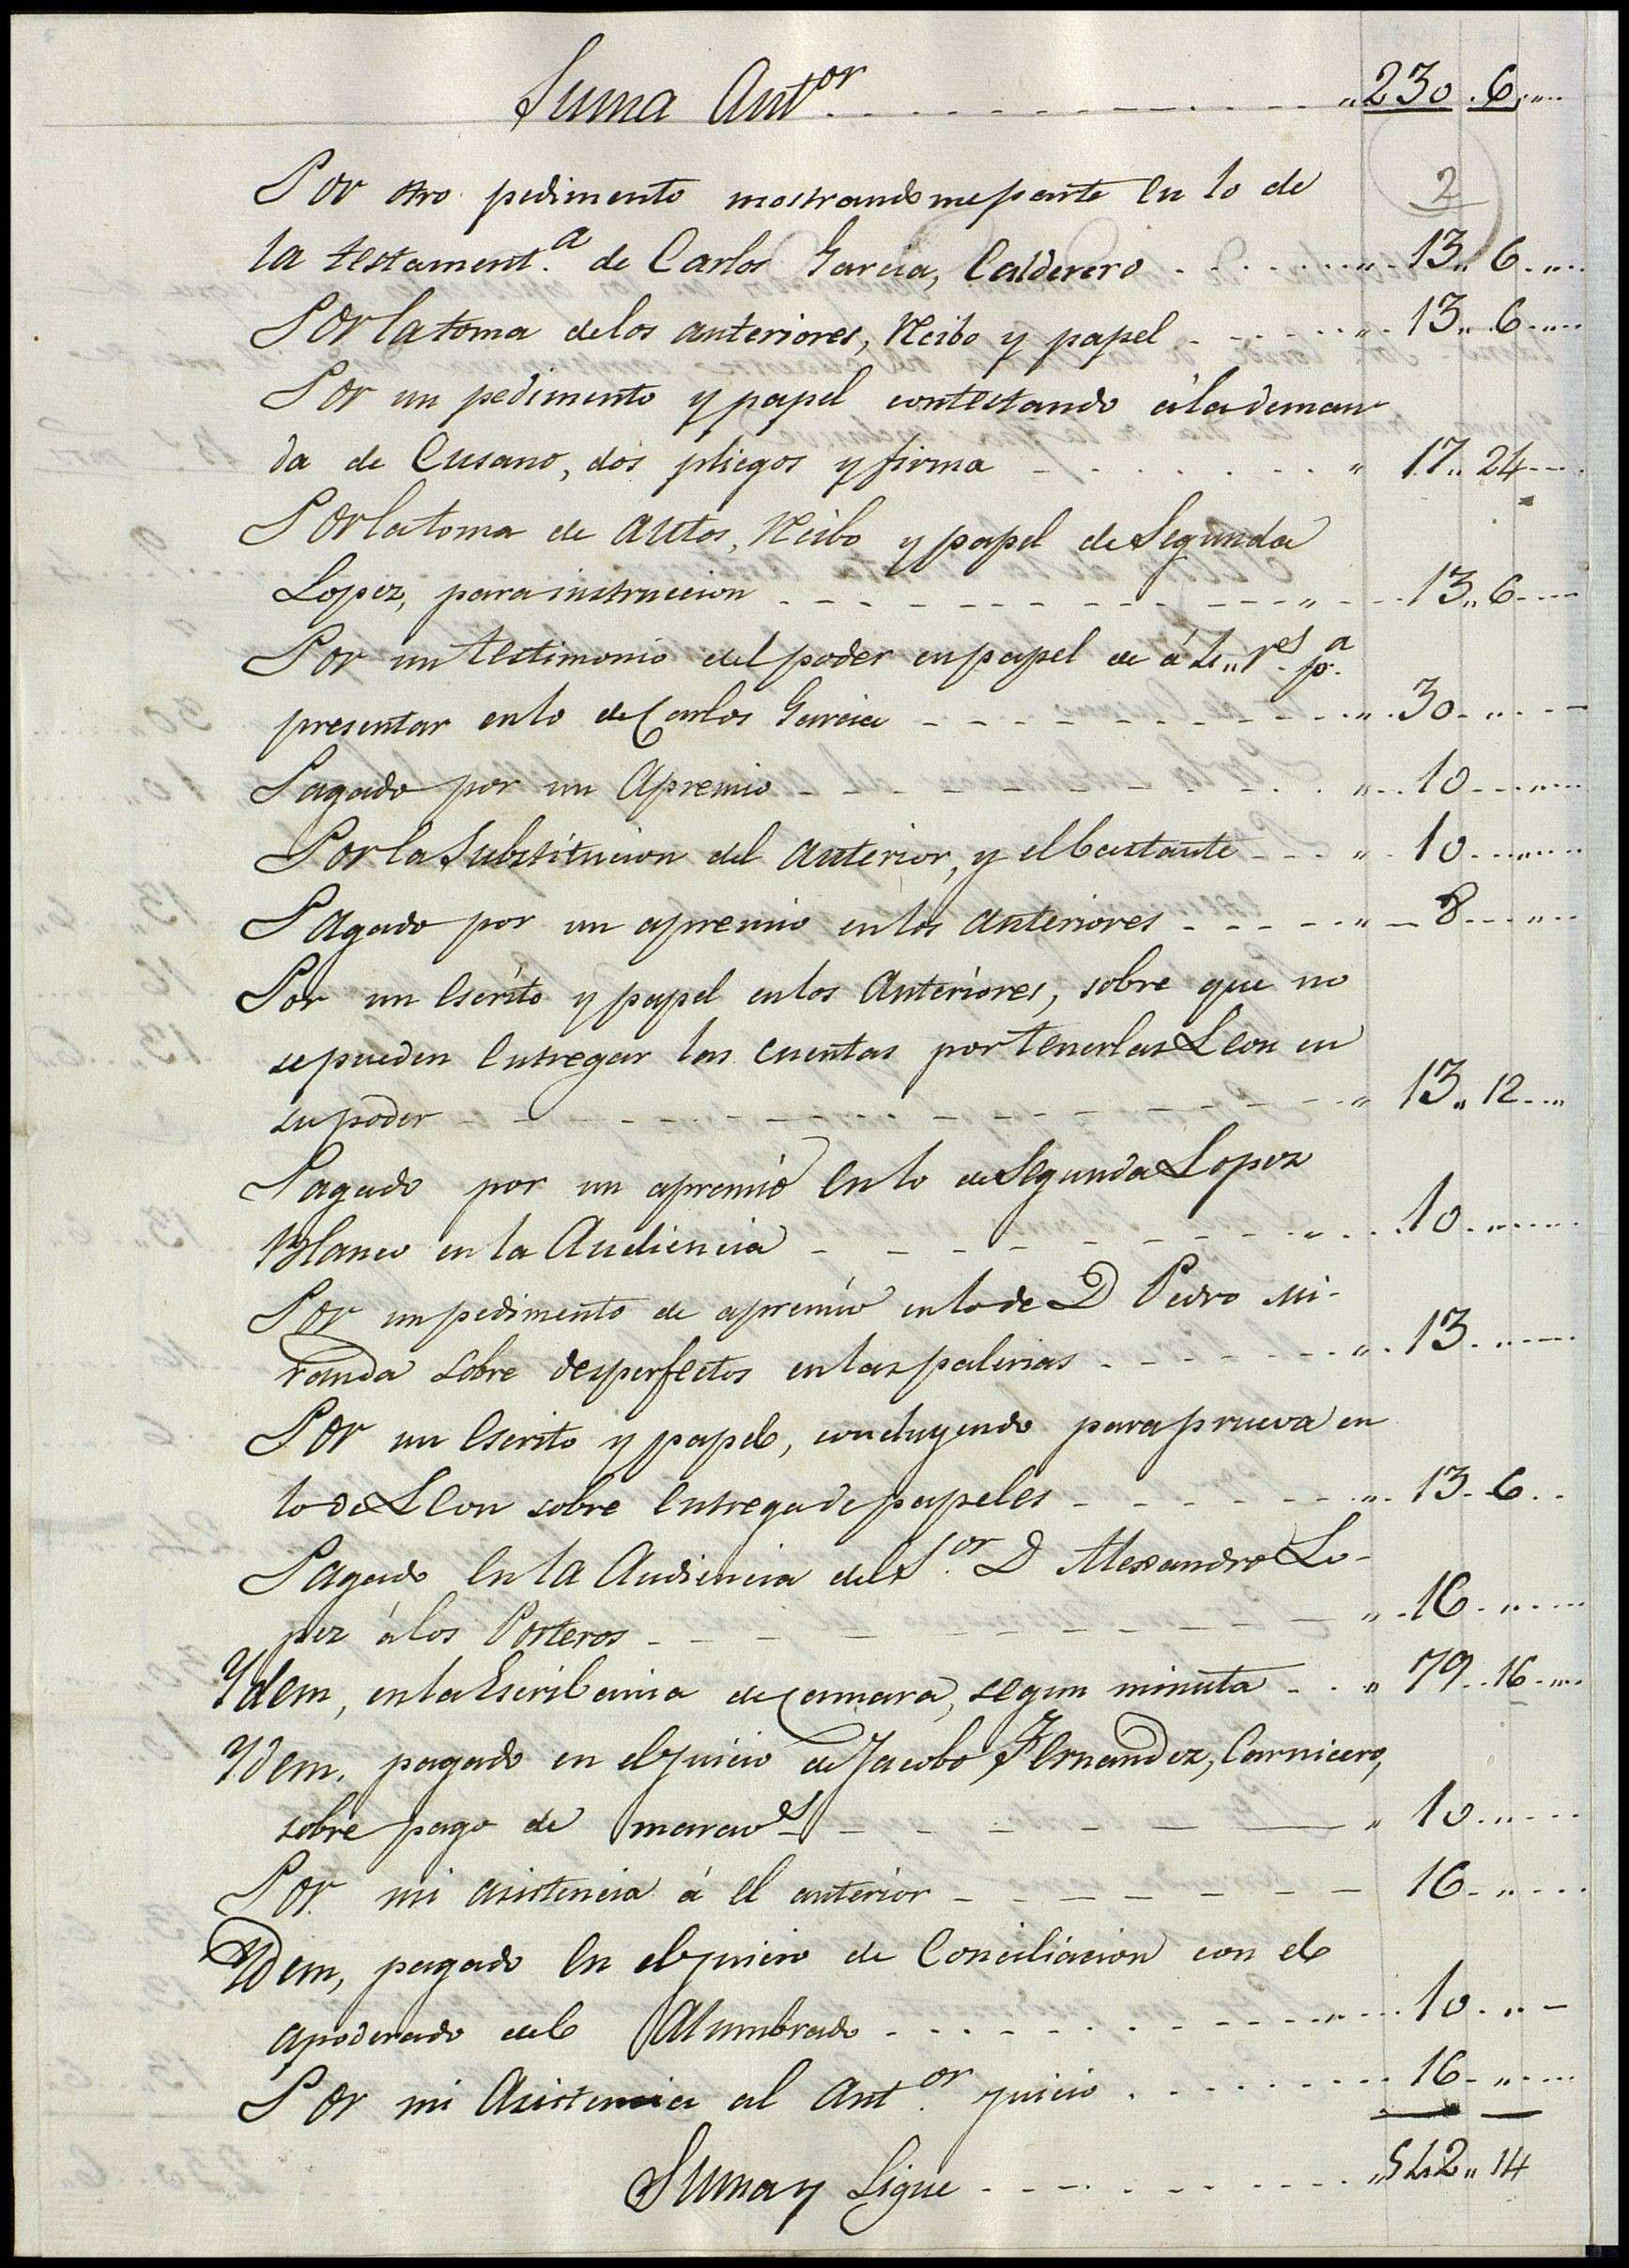 Suma Ant.or . . . . . . . . . . „ 230 . 6 „
2
Por otro pedimento mostrandome parte en lo de
la testament.a de Carlos Garcia, Calderero . . . . . „ 13 „ 6 . „
Por la toma de los anteriores, Recibo y papel . . . . . „ 13 „ 6 . „
Por un pedimento y papel contestando á la deman
da de Cusano, dos pliegos y firma . . . . . „ 17 „ 24
Por la toma de Autos, Recibo y papel de Segunda
Lopez, para instruccion . . . . . „ 13 „ 6
Por un testimonio del poder en papel de á 4 „ r.s p.a
presentar en lo de Carlos Garcia . . . . . „ 30 . „
Pagado por un Apremio . . . . . „ 10 . „
Por la Substitucion del anterior, y el bastante . . . „ 10 . „
Pagado por un apremio en los anteriores . . . . . „ 8 . „
Por un escrito y papel en los Anteriores, sobre que no
se pueden entregar las cuentas por tenerlas Leon en
su poder . . . . . „ 13 „ 12 . „
Pagado por un apremio en lo de Segunda Lopez
Blanco en la Audiencia . . . . . „ 10 . „
Por un pedimento de apremio en lo de D Pedro Mi-
randa sobre desperfectos en las palerias . . . . . „ 13 . „
Por un escrito y papel, concluyendo para prueva en
lo de Leon sobre entrega de papeles . . . . . „ 13 . 6 . .
Pagado en la Audiencia del S.or D Alexandro Lo-
pez á los Porteros . . . . . „ 16 . „
Ydem, en la Escribania de Camara, segun minuta . . „ 79 . 16 . „
Ydem, pagado en el juicio de Jacobo Fernandez, Carnicero,
sobre pago de marav.s . . . . . „ 10 . „
Por mi asistencia á el anterior . . . . . 16 . „
Ydem, pagado en el juicio de Conciliacion con el
apoderado del Alumbrado . . . . . „ 10 . „
Por mi Asistencia al Ant.or juicio . . . . . 16 . „
Suma y Sigue . . . . . „ 542 „ 14